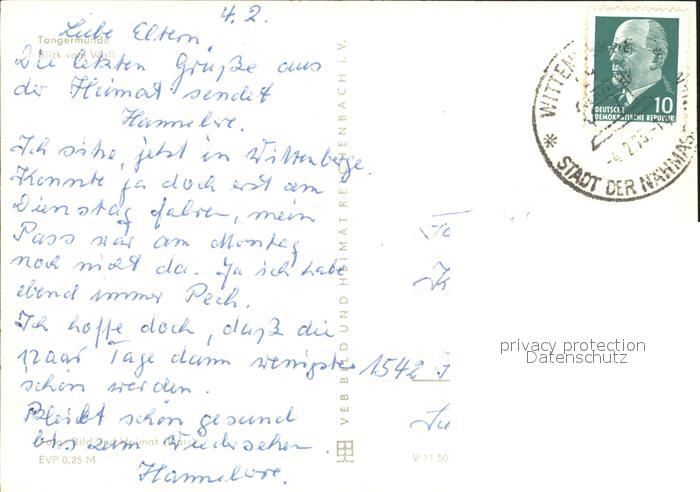 4.2.
Liebe Eltern
Tangermünde
Blick vom
Die letzten Grüße aus
der Heimat sendet
Hannelore.
Ich sitze jetzt in Wittenberge.
Konnte ja doch erst am
Dienstag fahren, mein
Pass war am Montag
noch nicht da. Ja ich habe
ebend immer Pech.
Ich hoffe doch, daß die
paar Tage dann wenigstens
schön werden.
Bleibt schön gesund
bis zum Wiedersehen.
Bild und Heimat
EVP 0,25 M
Hannelore.
VEB BILD UND HEIMAT REICHENBACH i. V.
V 11 50
1542
DEUTSCHE
DEMOKRATISCHE REPUBLIK
10
* WITTEN
STADT DER NÄHMAS
privacy protection
Datenschutz